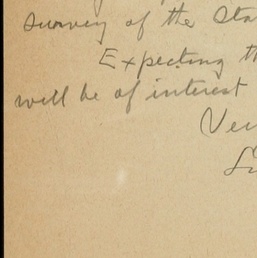 survey of the Sta
Expecting th
will be of interest
Ver